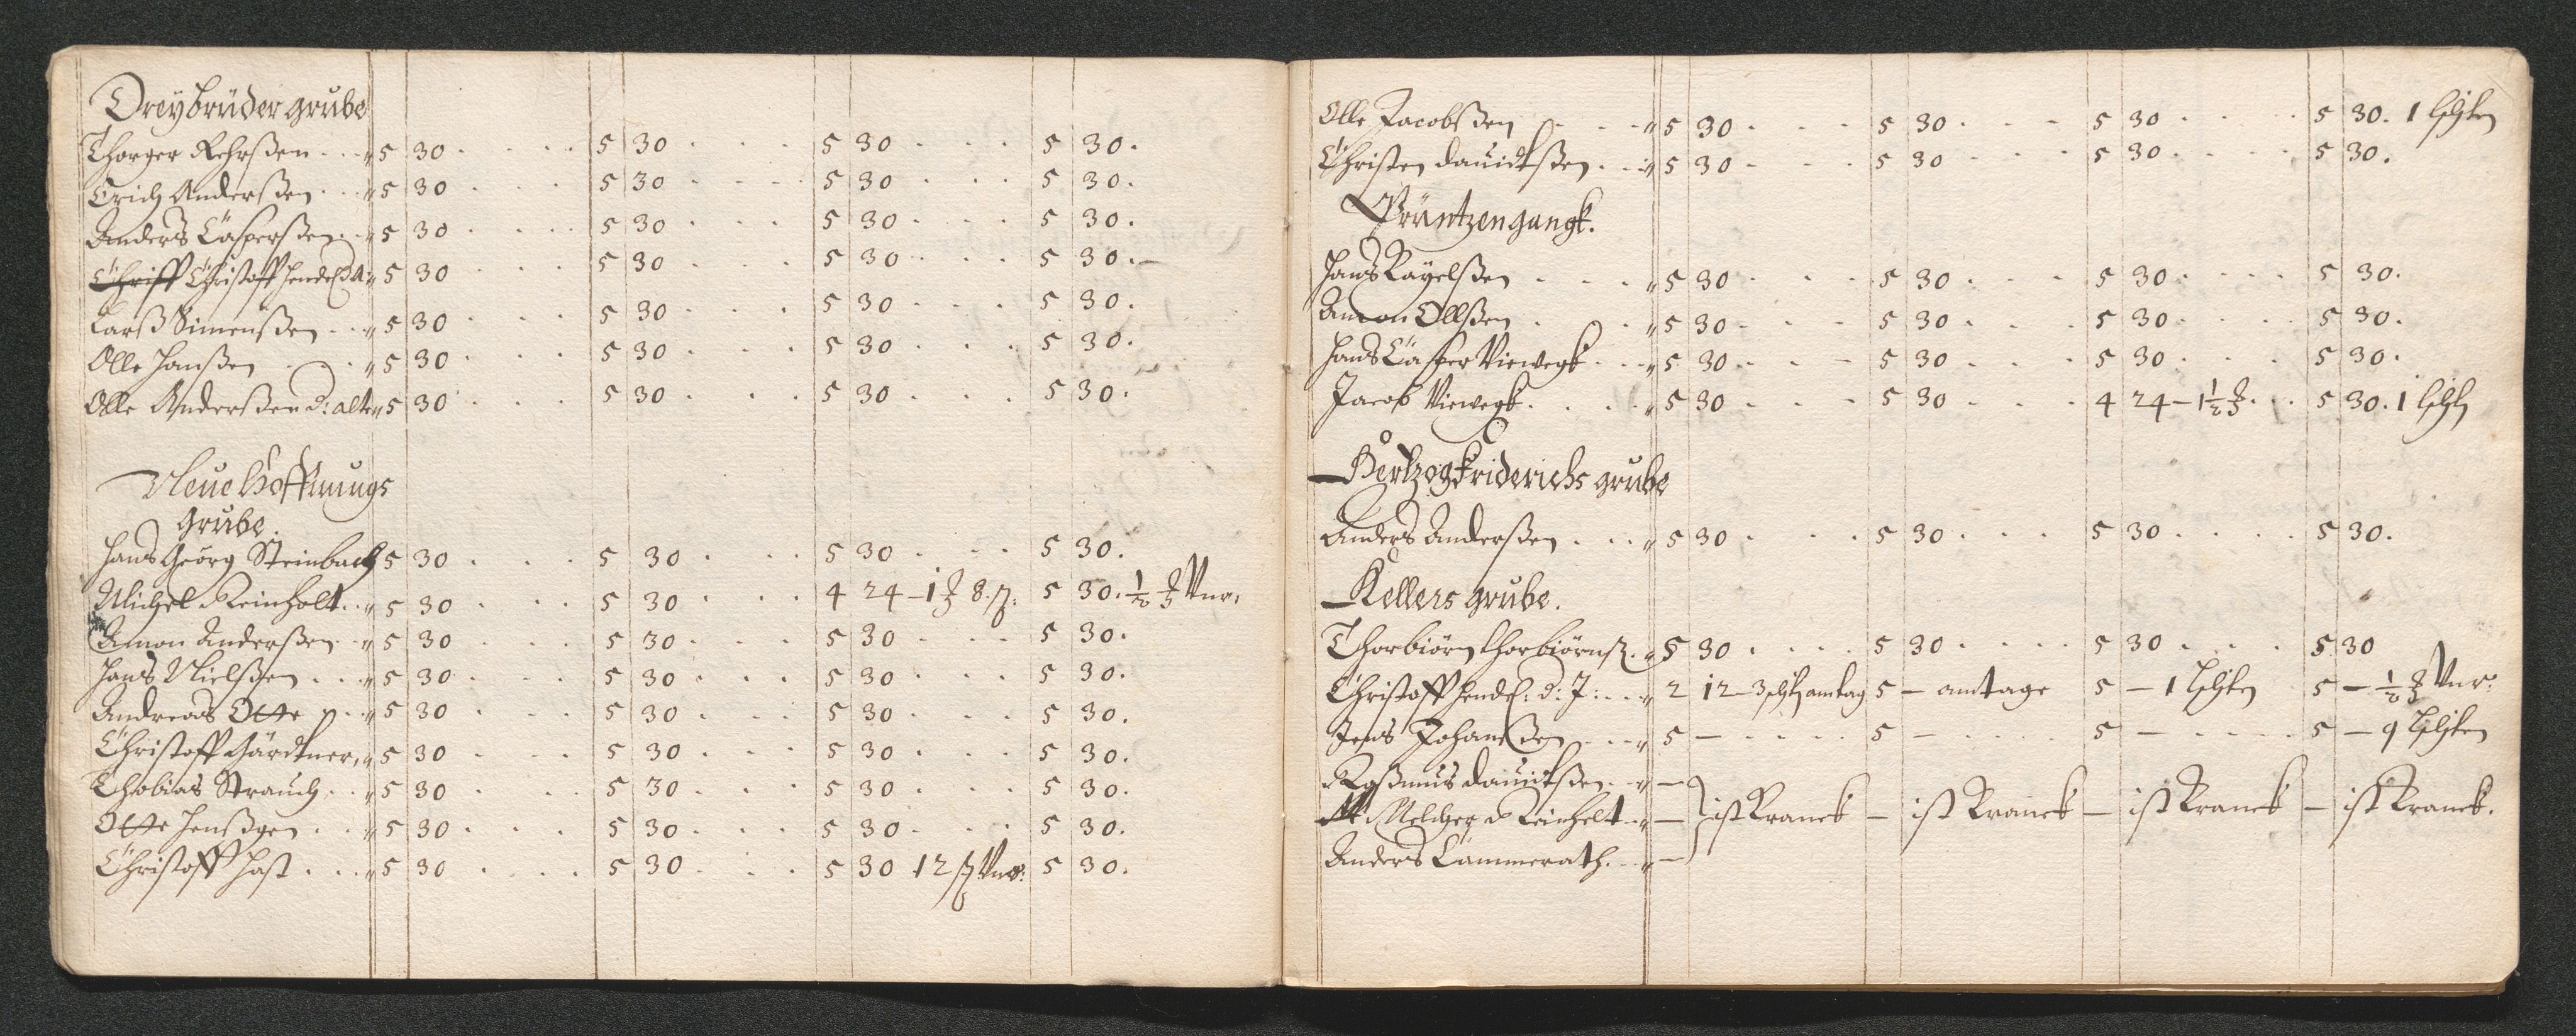 Dreÿbrüder grube
Thorger Rehrßen . . . " 5 30 . . . . 5 30 . . . 5 30 . . . 5 30.
Erich Anderßen . . . " 5 30 . . . 5 30 . . . 5 30 . . . 5 30.
Anders Casperßen . . " 5 30 . . . . 5 30 . . . 5 30 . . . 5 30.
Christoff Hendel d A: " 5 30 . . . 5 30 . . . 5 30 . . . 5 30.
Larß Simenßen . . . " 5 30 . . . 5 30 . . . 5 30 . . . 5 30.
Olle Hanßen . . . " 5 30 . . . 5 30 . . . 5 30 . . . 5 30.
Olle Anderßen d: alte " 5 30 . . . 5 30 . . . 5 30 . . . 5 30.
Neue Hoffnungs
Grube.
Hans Georg Steinbach 5 30 . . . 5 30 . . . 5 30 . . . 5 30.
Michel Reinholt . . " 5 30 . . . 5 30 . . . 4 24 – 1 8 5 30. ½ Vnr.
Amon Anderßen . . " 5 30 . . . 5 30 . . . 5 30 . . . 5 30.
Hans Nielßen . . . " 5 30 . . . 5 30 . . . 5 30 . . . 5 30.
Andreas Otte . . . " 5 30 . . . 5 30 . . . 5 30 . . . 5 30.
Christoff Gärdtner, " 5 30 . . . 5 30 . . . 5 30 . . . 5 30.
Thobias Strauch . . " 5 30 . . . 5 30 . . . 5 30 . . . 5 30.
Otte Henßgen . . . " 5 30 . . . 5 30 . . . 5 30 . . . 5 30.
Christoff Hast . . . " 5 30 . . . 5 30 . . . 5 30 12 ß Vnr: 5 30.
Olle Jacobßen . . . " 5 30 . . . 5 30 . . . 5 30 . . . 5 30. 1
Christen Dauidtßen . . " 5 30 . . . 5 30 . . . 5 30 . . . 5 30.
Printzen gangk.
Hans . . . " 5 30 . . . 5 30 . . . 5 30 . . . 5 30.
Amon Ollßen . . . " 5 30 . . . 5 30 . . . 5 30 . . . 5 30.
Hans Casper Viewegk . . " 5 30 . . . 5 30 . . . 5 30 . . . 5 30.
Jacob Viewegk . . . " 5 30 . . . 5 30 . . . 4 24 – 1½ . . 5 30. 1
Hertzog Friderichs grube
Anders Anderßen . . . " 5 30 . . . 5 30 . . . 5 30 . . . 5 30.
Kellers grube.
Thorbiörn Thorbiörnß. " 5 30 . . . 5 30 . . . 5 30 . . . 5 30
Christoff Hendel: d: J: . . " 2 12 – 3 amtag 5 – amtage 5 – 1 5 – ½ Vnr:
Jens Johanßen . . . " 5 – . . . . 5 – . . . . 5 – . . . . 5 – 9
Raßmus Dauidtßen . . " –
Melcher Reinholt . . " – ist Kranck – ist Kranck – ist Kranck – ist Kranck.
Anders Cammerath . . " –